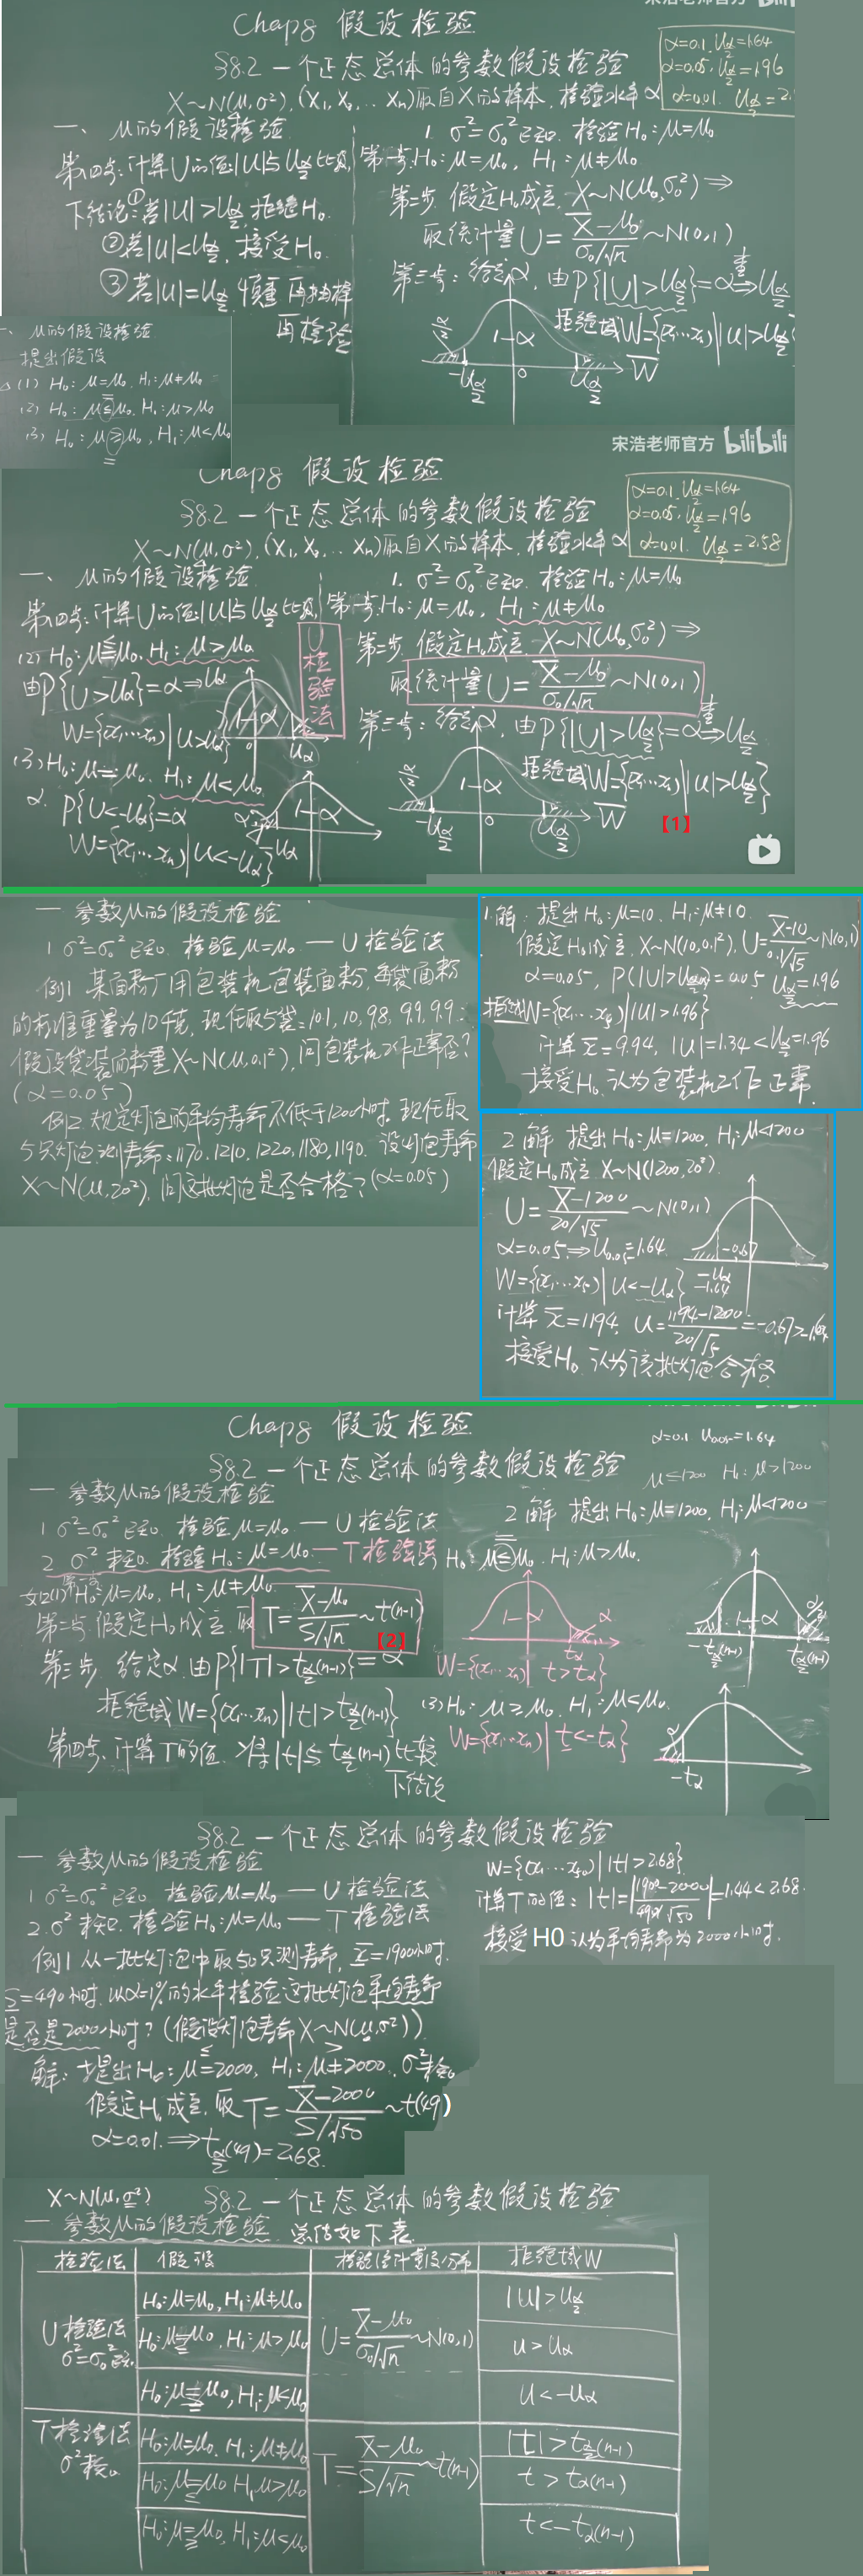 宋浩老师官方 bilibili
Chap8 假设检验
§8.2 一个正态总体的参数假设检验
α=0.1. Uα/2=1.64
α=0.05, Uα/2=1.96
α=0.01. Uα/2=2.
X~N(μ,σ²), (X₁, X₂, … Xn)取自X的样本, 检验水平α
一、μ的假设检验
第四步: 计算U的值|U|与Uα/2比较,
下结论: ①若|U|>Uα/2, 拒绝H₀.
②若|U|<Uα/2, 接受H₀.
③若|U|=Uα/2, 慎重, 再抽样
再检验
1. σ²=σ₀²已知. 检验H₀: μ=μ₀
第一步: H₀: μ=μ₀, H₁: μ≠μ₀
第二步. 假定H₀成立. X~N(μ₀,σ₀²) ⇒
取统计量U=(X̄-μ₀)/(σ₀/√n)~N(0,1)
第三步: 给定α, 由P{|U|>Uα/2}=α 查⇒Uα/2
拒绝域W={(x₁…xn)||u|>Uα/2}
α/2 1-α
-Uα/2 0 Uα/2 W
一、μ的假设检验
提出假设
(1) H₀: μ=μ₀, H₁: μ≠μ₀
(2) H₀: μ≦μ₀. H₁: μ>μ₀
(3) H₀: μ≧μ₀, H₁: μ<μ₀
宋浩老师官方 bilibili
Chap8 假设检验
§8.2 一个正态总体的参数假设检验
α=0.1. Uα/2=1.64
α=0.05, Uα/2=1.96
α=0.01. Uα/2=2.58
X~N(μ,σ²), (X₁, X₂, … Xn)取自X的样本, 检验水平α
一、μ的假设检验
第四步: 计算U的值|U|与Uα/2比较,
(2) H₀: μ≦μ₀, H₁: μ>μ₀
由P{U>Uα}=α⇒Uα
W={(x₁…xn)|U>Uα}
1-α Uα
(3) H₀: μ=μ₀. H₁: μ<μ₀
α. P{U<-Uα}=α
W={(x₁…xn)|U<-Uα}
α 1-α -Uα
U检验法
1. σ²=σ₀²已知. 检验H₀: μ=μ₀
第一步: H₀: μ=μ₀, H₁: μ≠μ₀
第二步. 假定H₀成立. X~N(μ₀,σ₀²) ⇒
取统计量U=(X̄-μ₀)/(σ₀/√n)~N(0,1)
第三步: 给定α, 由P{|U|>Uα/2}=α 查⇒Uα/2
拒绝域W={(x₁…xn)||u|>Uα/2}
α/2 1-α
-Uα/2 0 Uα/2 W
【1】
一 参数μ的假设检验
1 σ²=σ₀²已知. 检验μ=μ₀ — U检验法
例1 某面粉厂用包装机包装面粉, 每袋面粉
的标准重量为10千克, 现任取5袋: 10.1, 10, 9.8, 9.9, 9.9.
假设袋装面粉重X~N(μ,0.1²), 问包装机工作正常否?
(α=0.05)
例2. 规定灯泡的平均寿命不低于1200小时. 现任取
5只灯泡. 测寿命: 1170, 1210, 1220, 1180, 1190. 设灯泡寿命
X~N(μ,20²), 问这批灯泡是否合格? (α=0.05)
1.解: 提出H₀: μ=10、H₁: μ≠10
假定H₀成立, X~N(10,0.1²), U=(X̄-10)/(0.1/√5)~N(0,1)
α=0.05, P(|U|>Uα/2)=0.05 Uα/2=1.96
拒绝域W={(x₁…x₅)||U|>1.96}
计算x̄=9.94, |U|=1.34<Uα/2=1.96
接受H₀, 认为包装机工作正常.
2 解 提出H₀: μ=1200, H₁: μ<1200
假定H₀成立 X~N(1200,20²).
U=(X̄-1200)/(20/√5)~N(0,1)
α=0.05⇒U0.05=1.64.
W={(x₁…x₅)|U<-Uα}
-0.67
-Uα
-1.64
计算x̄=1194, U=(1194-1200)/(20/√5)=-0.67>-1.64
接受H₀. 认为该批灯泡合格
Chap8 假设检验
α=0.1 U0.05=1.64
§8.2 一个正态总体的参数假设检验
μ≤1200 H₁: μ>1200
一 参数μ的假设检验
1 σ²=σ₀²已知. 检验μ=μ₀ — U检验法
2 σ²未知. 检验H₀: μ=μ₀ — T检验法
第一步 H₀: μ=μ₀, H₁: μ≠μ₀
第二步. 假定H₀成立. 取T=(X̄-μ₀)/(S/√n)~t(n-1)
【2】
第三步 给定α. 由P{|T|>tα/2(n-1)}=α
拒绝域W={(x₁…xn)||t|>tα/2(n-1)}
第四步、计算T的值. 将|t|与tα/2(n-1)比较
下结论
2 解 提出H₀: μ=1200, H₁: μ<1200
H₀: μ≦μ₀. H₁: μ>μ₀.
1-α α tα
W={(x₁…xn)|t>tα}
(3) H₀: μ≥μ₀. H₁: μ<μ₀.
W={(x₁…xn)|t<-tα}
1-α α/2
-tα/2(n-1) tα/2(n-1)
α
-tα
§8.2 一个正态总体的参数假设检验
一 参数μ的假设检验
1 σ²=σ₀²已知. 检验μ=μ₀ — U检验法
2. σ²未知. 检验H₀: μ=μ₀ — T检验法
例1 从一批灯泡中取50只测寿命, x̄=1900小时.
S=490小时. 以α=1%的水平检验这批灯泡平均寿命
是否是2000小时? (假设灯泡寿命X~N(μ,σ²)).
解: 提出H₀: μ=2000, H₁: μ≠2000. σ²未知.
≤ >
假定H₀成立. 取T=(X̄-2000)/(S/√50)~t(49)
α=0.01.⇒tα/2(49)=2.68.
W={(x₁…x₅₀)||t|>2.68}
计算T的值: |t|=|(1900-2000)/(490/√50)|=1.44<2.68.
接受H0 认为平均寿命为2000小时.
X~N(μ,σ²) §8.2 一个正态总体的参数假设检验
一 参数μ的假设检验 总结如下表
检验法 假设 检验统计量及分布 拒绝域W
U检验法 σ²=σ₀²已知.
H₀: μ=μ₀, H₁: μ≠μ₀
H₀: μ≦μ₀, H₁: μ>μ₀
H₀: μ≧μ₀, H₁: μ<μ₀
U=(X̄-μ₀)/(σ₀/√n)~N(0,1)
|U|>Uα/2
u>Uα
U<-Uα
T检验法 σ²未知
H₀: μ=μ₀. H₁: μ≠μ₀
H₀: μ≦μ₀ H₁: μ>μ₀
H₀: μ≧μ₀, H₁: μ<μ₀
T=(X̄-μ₀)/(S/√n)~t(n-1)
|t|>tα/2(n-1)
t>tα(n-1)
t<-tα(n-1)